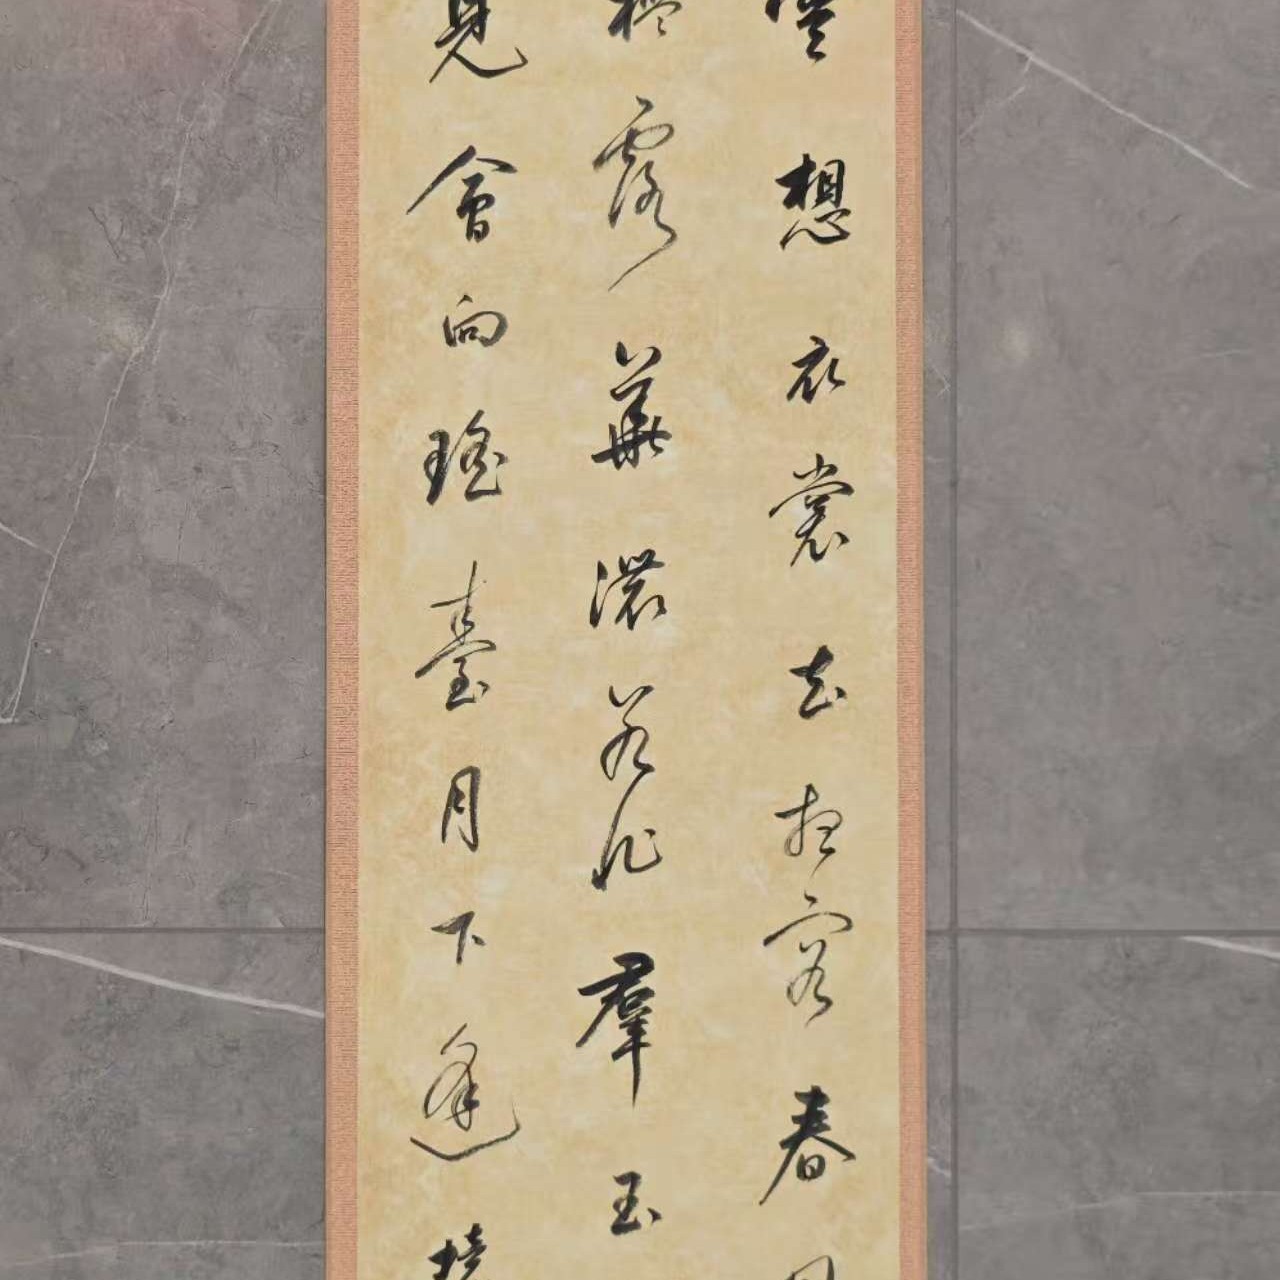 雲想衣裳花想容春
檻露華濃若非羣玉
見會向瑤臺月下逢